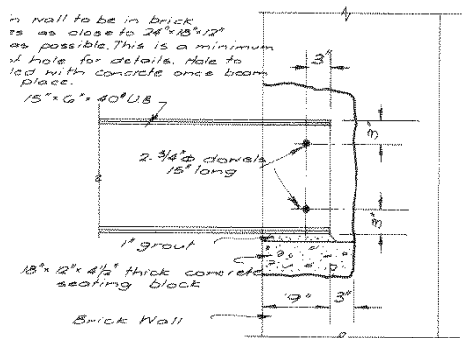 in wall to be in brick
es as close to 24"×18"×12"
as possible. This is a minimum
of hole for details. Hole to
led with concrete once beam
place.
15"×6"×40# U.B
3"
3"
2-3/4"Φ dowels
15" long
3"
1" grout
18"×12"×4½" thick concrete
seating block
9" 3"
Brick Wall